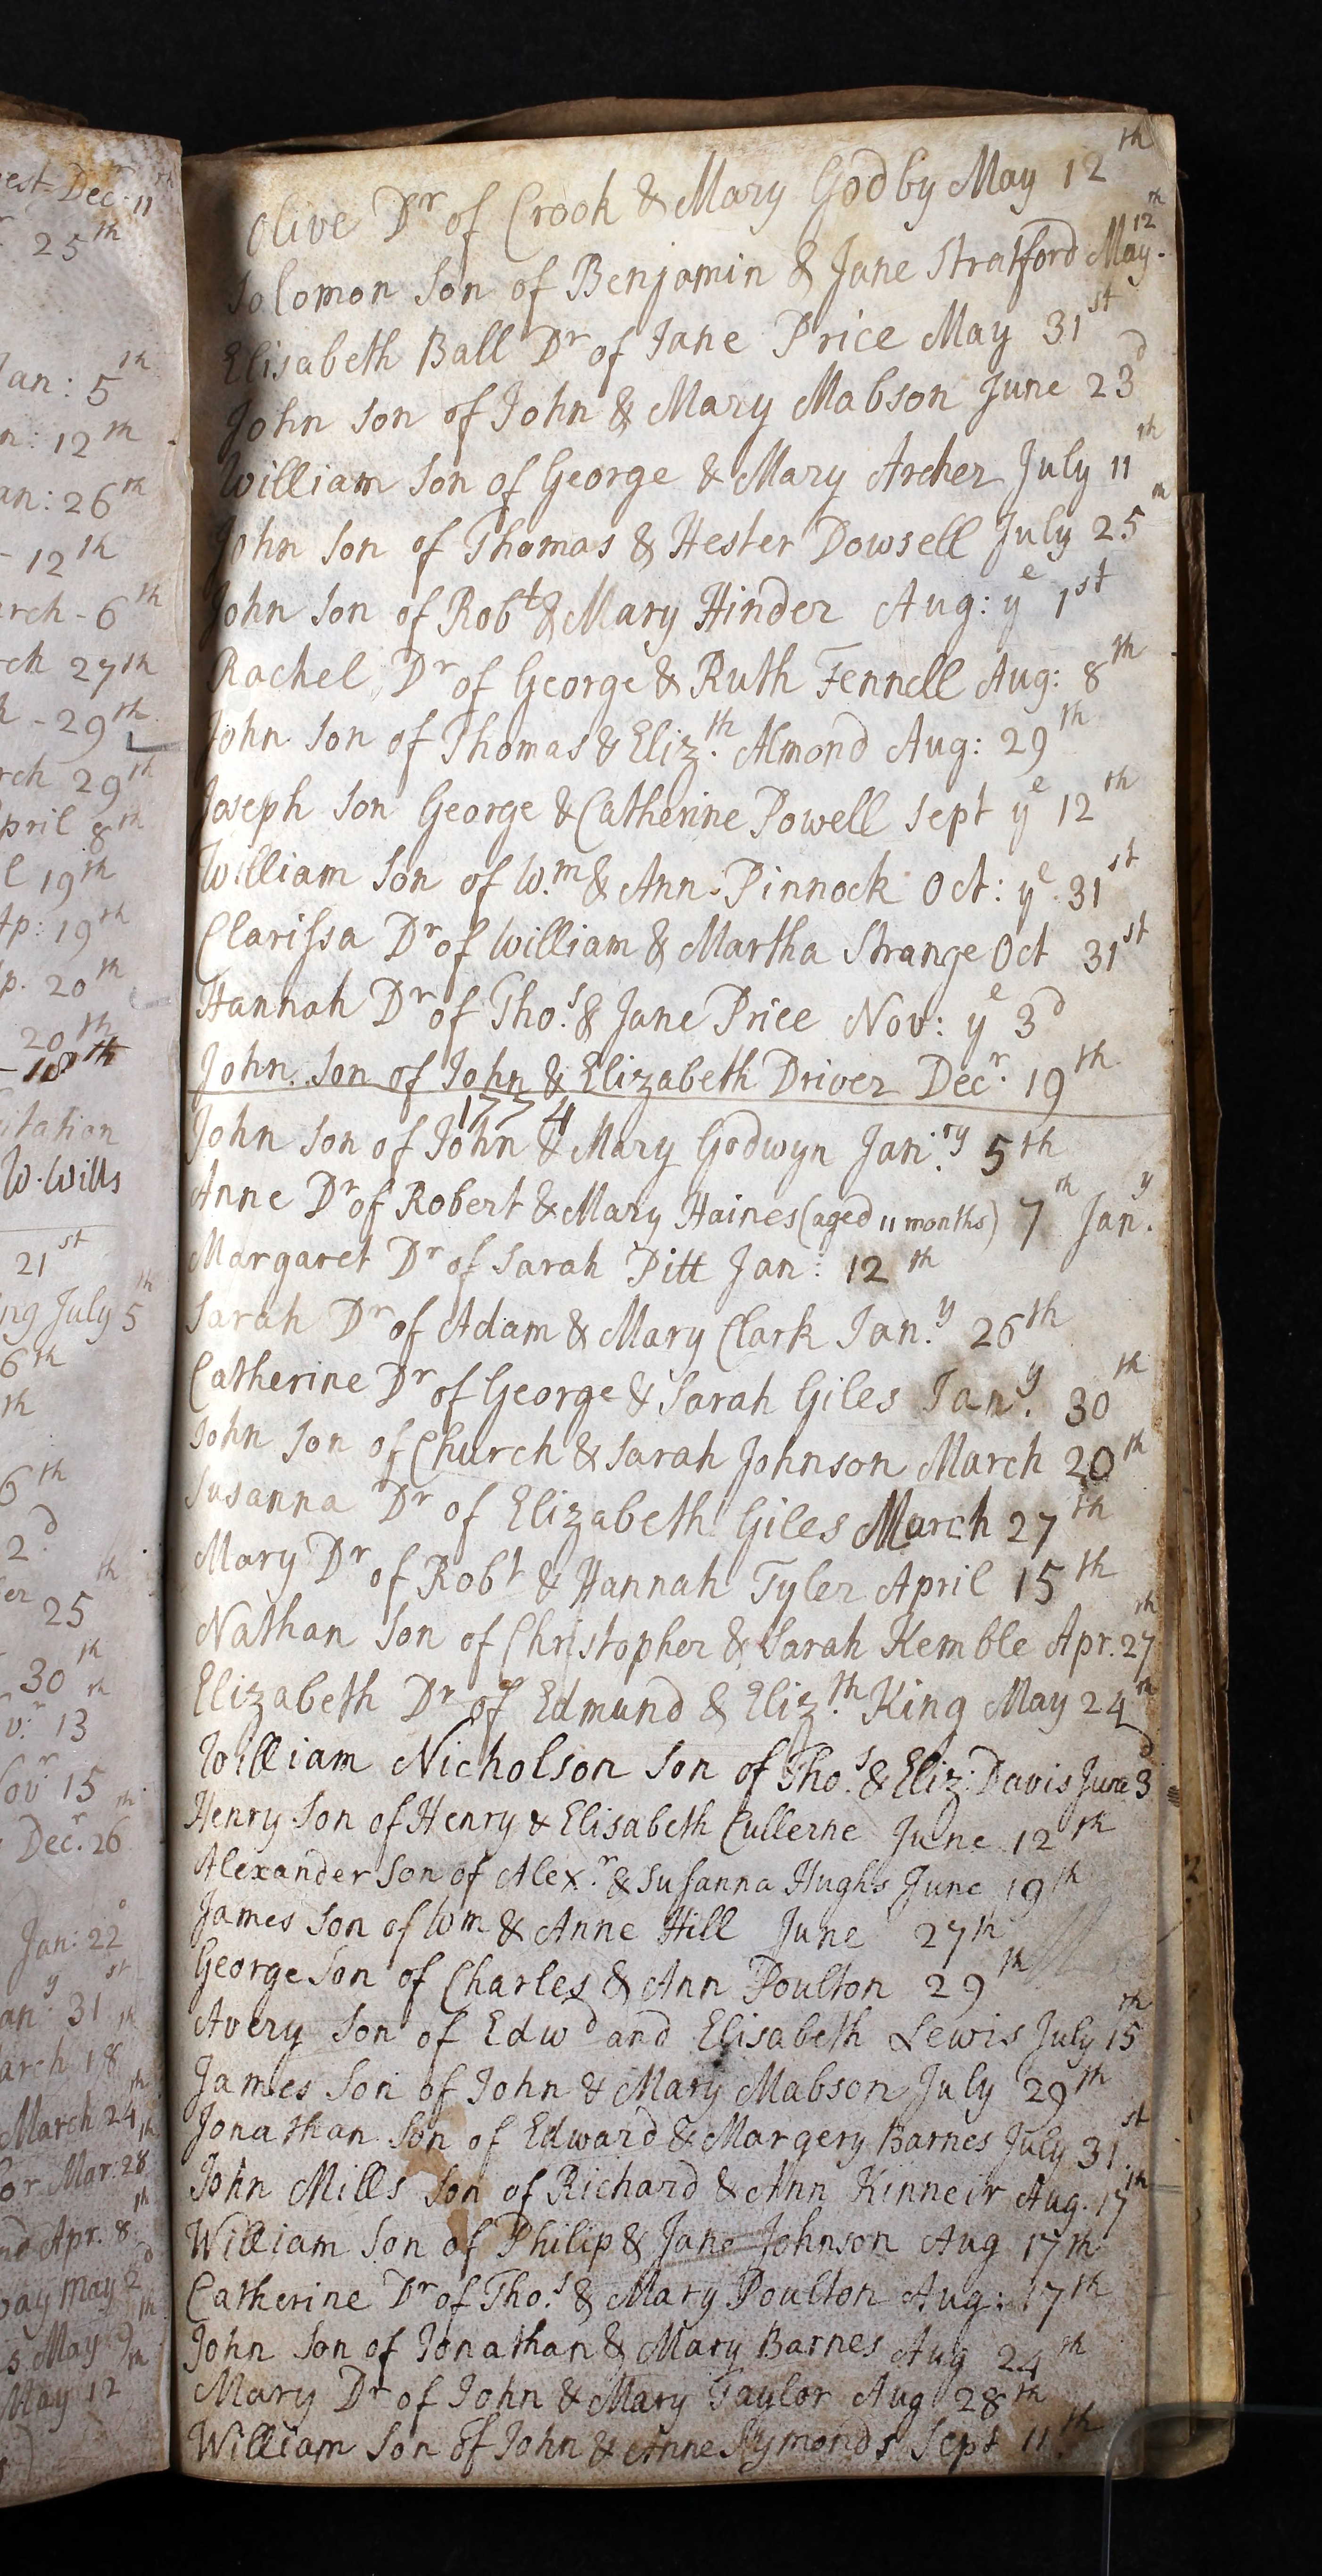 est Decr 11th
25th
Jan: 5th
n: 12th
an: 26th
- 12th
arch - 6th
rch 27th
h - 29th
rch 29th
April 8th
l 19th
Ap: 19th
p. 20th
20th
itation
W. Wills
21st
ng July 5th
6th
th
6th
2d
er 25th
30th
v:r 13th
Novr 15th
Decr. 26
Jan: 22d
any 31st
arch 18th
March 24th
or Mar: 28th
nd Apr. 8th
bay May 2d
s May 9th
May 12th
Olive Dr of Crook & Mary Godby May 12th
Solomon Son of Benjamin & Jane Stratford May. 12th
Elisabeth Ball Dr of Jane Price May 31st
John Son of John & Mary Mabson June 23d
William Son of George & Mary Archer July 11th
John Son of Thomas & Hester Dowsell July 25th
John Son of Robt & Mary Hinder Aug: ye 1st
Rachel Dr of George & Ruth Fennell Aug: 8th
John Son of Thomas & Eliz.th Almond Aug: 29th
Joseph Son George & Catherine Powell Sept ye 12th
William Son of W.m & Ann Pinnock Oct: ye 31st
Clarifsa Dr of William & Martha Strange Oct 31st
Hannah Dr of Tho.s & Jane Price Nov: ye 3d
John Son of John & Elizabeth Driver Decr. 19th
1774
John Son of John & Mary Godwyn Jan:ry 5th
Anne Dr of Robert & Mary Haines (aged 11 months) 7th Jan.y
Margaret Dr of Sarah Pitt Jan: 12th
Sarah Dr of Adam & Mary Clark Jan.y 26th
Catherine Dr of George & Sarah Giles Jan.y 30th
John Son of Church & Sarah Johnson March 20th
Susanna Dr of Elizabeth Giles March 27th
Mary Dr of Robt & Hannah Tyler April 15th
Nathan Son of Christopher & Sarah Kemble Apr. 27th
Elizabeth Dr of Edmund & Eliz.th King May 24th
William Nicholson Son of Tho.s & Eliz: Davis June 3d
Henry Son of Henry & Elisabeth Cullerne June 12th
Alexander Son of Alex.r & Susanna Hughs June 19th
James Son of Wm & Anne Hill June 27th
George Son of Charles & Ann Poulton 29th
Avery Son of Edwd and Elisabeth Lewis July 15th
James Son of John & Mary Mabson July 29th
Jonathan Son of Edward & Margery Barnes July 31st
John Mills Son of Richard & Ann Kinneir Aug. 17th
William Son of Philip & Jane Johnson Aug 17th
Catherine Dr of Tho.s & Mary Poulton Aug: 17th
John Son of Jonathan & Mary Barnes Aug 24th
Mary Dr of John & Mary Taylor Aug 28th
William Son of John & Anne Symonds Sept 11th